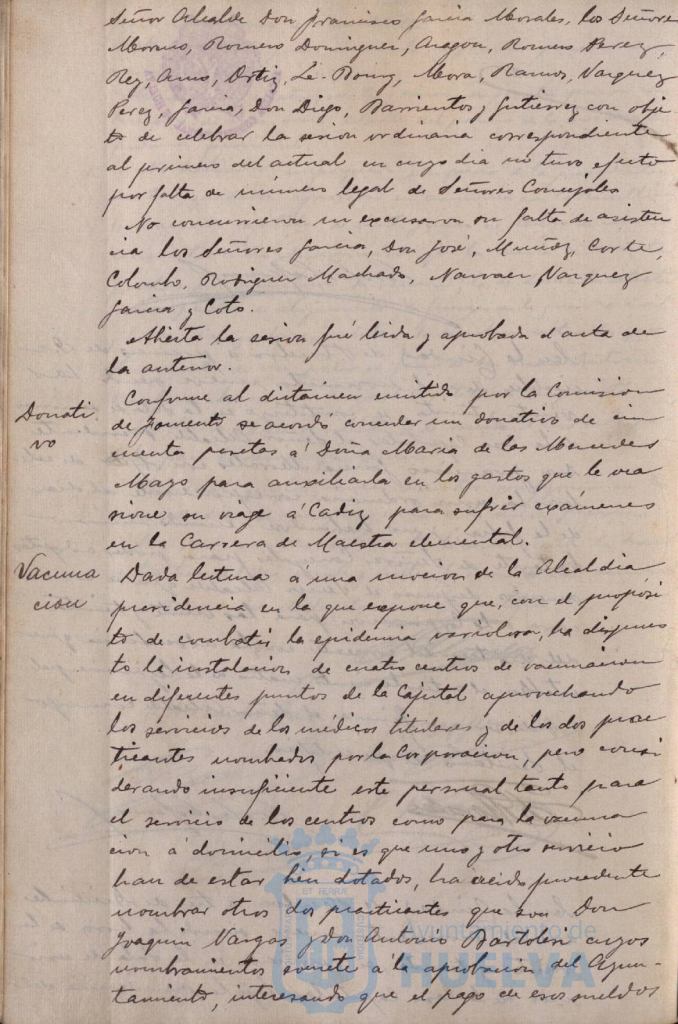 Señor Alcalde Don Francisco Garcia Morales, los Señores
Moreno, Romero Dominguez, Aragon, Romero Perez,
Rey, Amo, Ortiz, Le-Bourg, Mora, Ramos, Vazquez
Perez, Garcia, Don Diego, Barrientos y Gutierrez con obje-
to de celebrar la sesion ordinaria correspondiente
al primero del actual en cuyo dia no tuvo efecto
por falta de número legal de Señores Concejales
No concurrieron ni excusaron su falta de asisten
cia los Señores Garcia, Don José, Muñoz, Corte,
Colombo, Rodriguez Machado, Narvaez Vazquez
Garcia y Coto.
Abierta la sesion fué leida y aprobada el acta de
la anterior.
Donati
vo
Conforme al dictamen emitido por la Comision
de fomento se acordó conceder un donativo de cin
cuenta pesetas á Doña Maria de las Mercedes
Mayo para auxiliarla en los gastos que le oca
sione su viaje á Cadiz para sufrir exámenes
en la Carrera de Maestra elemental.
Vacuna
cion
Dada lectura á una mocion de la Alcaldia
presidencia en la que expone que, con el proposi
to de combatir la epidemia variolosa, ha dispues
to la instalacion de cuatro centros de vacunacion
en diferentes puntos de la Capital aprovechando
los servicios de los médicos titulares y de los dos prac
ticantes nombrados por la Corporacion, pero consi
derando insuficiente este personal tanto para
el servicio de los centros como para la vacuna
cion á domicilio, si es que uno y otro servicio
han de estar bien dotados, ha creido procedente
nombrar otros dos practicantes que son Don
Joaquin Vargas y Don Antonio Bartolesi cuyos
nombramientos somete á la aprobacion del Ayun-
tamiento, interesando que el pago de esos sueldos
Ayuntamiento de
HUELVA